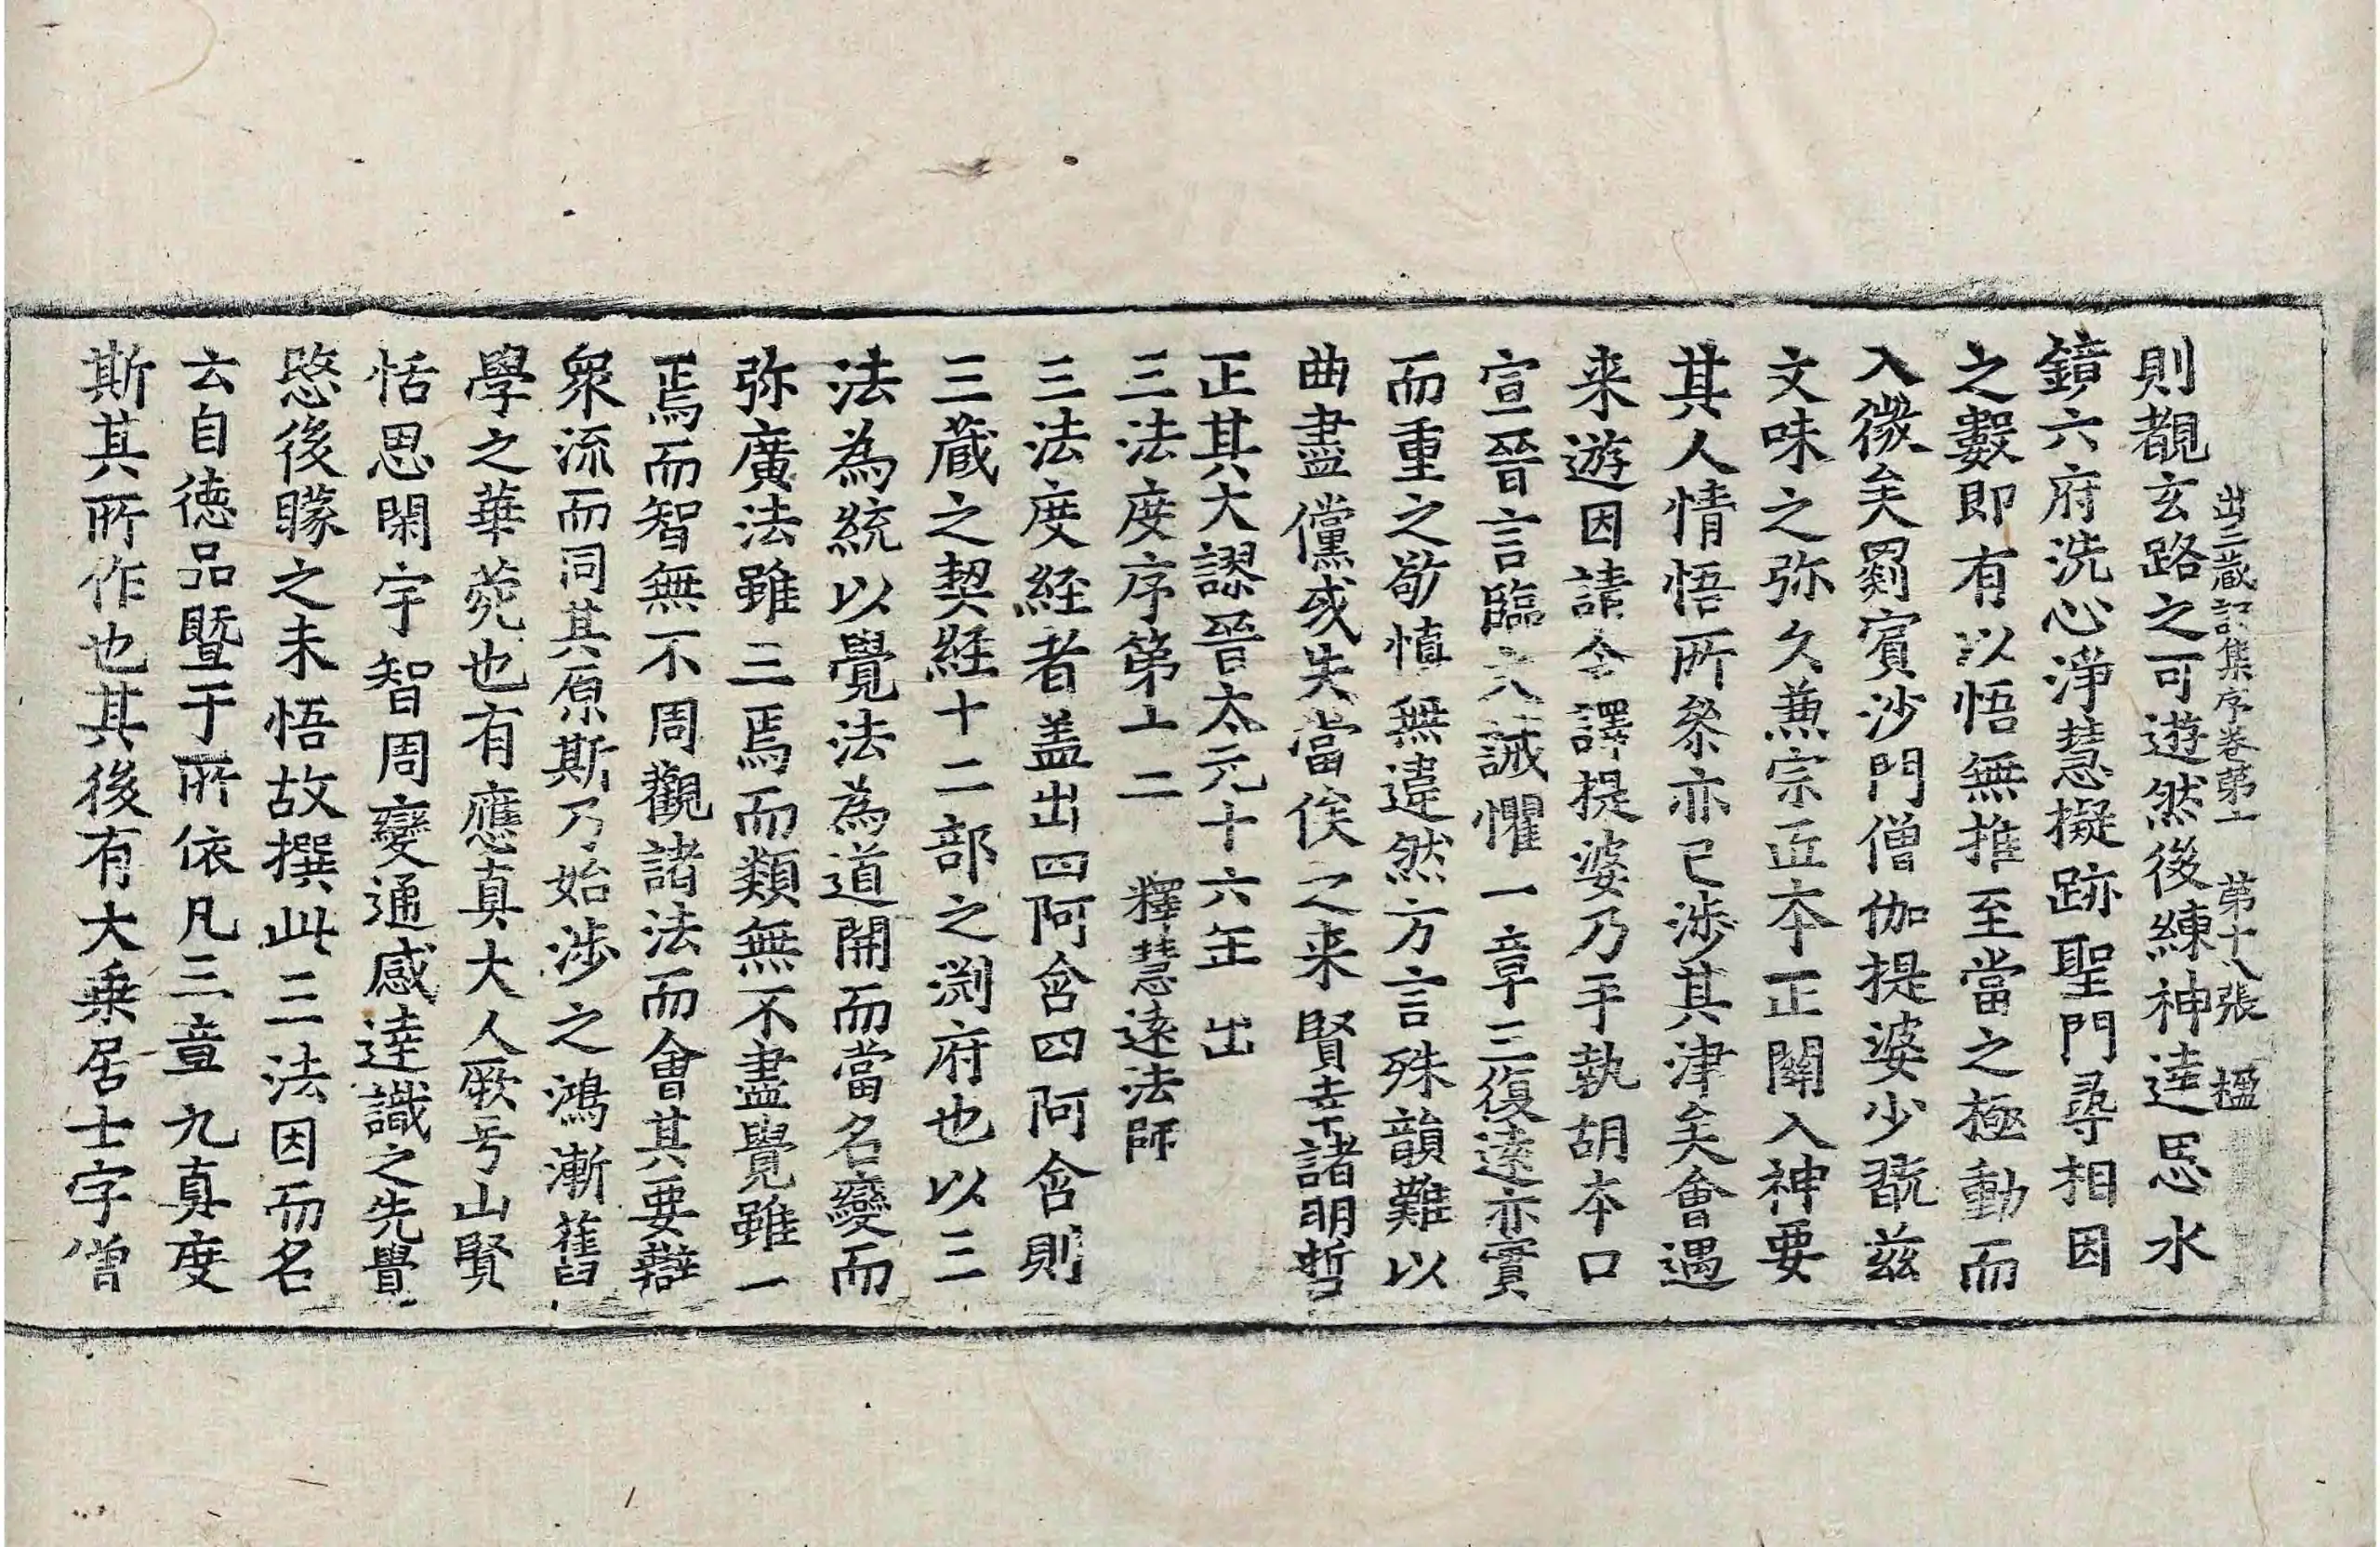 出三藏記集序卷第十 第十八張 楹
則覩玄路之可遊然後練神達思水
鏡六府洗心淨慧擬跡聖門尋相因
之數即有以悟無推至當之極動而
入微矣罽賓沙門僧伽提婆少翫茲
文味之弥久兼宗匠本正關入神要
其人情悟所叅亦已涉其津矣會遇
来遊因請令譯提婆乃手執胡本口
宣晉言臨文誡懼一章三復遠亦實
而重之敬慎無違然方言殊韻難以
曲盡儻或失當俟之来賢幸諸明哲
正其大謬晉太元十六年出
三法度序第十二 釋慧遠法師
三法度経者盖出四阿含四阿含則
三藏之契経十二部之渕府也以三
法為統以覺法為道開而當名變而
弥廣法雖三焉而類無不盡覺雖一
焉而智無不周觀諸法而會其要辯
衆流而同其原斯乃始涉之鴻漸舊
學之華菀也有應真大人厥号山賢
恬思閑宇智周變通感達識之先覺
愍後矇之未悟故撰此三法因而名
云自德品暨于所依凡三章九真度
斯其所作也其後有大乗居士字僧